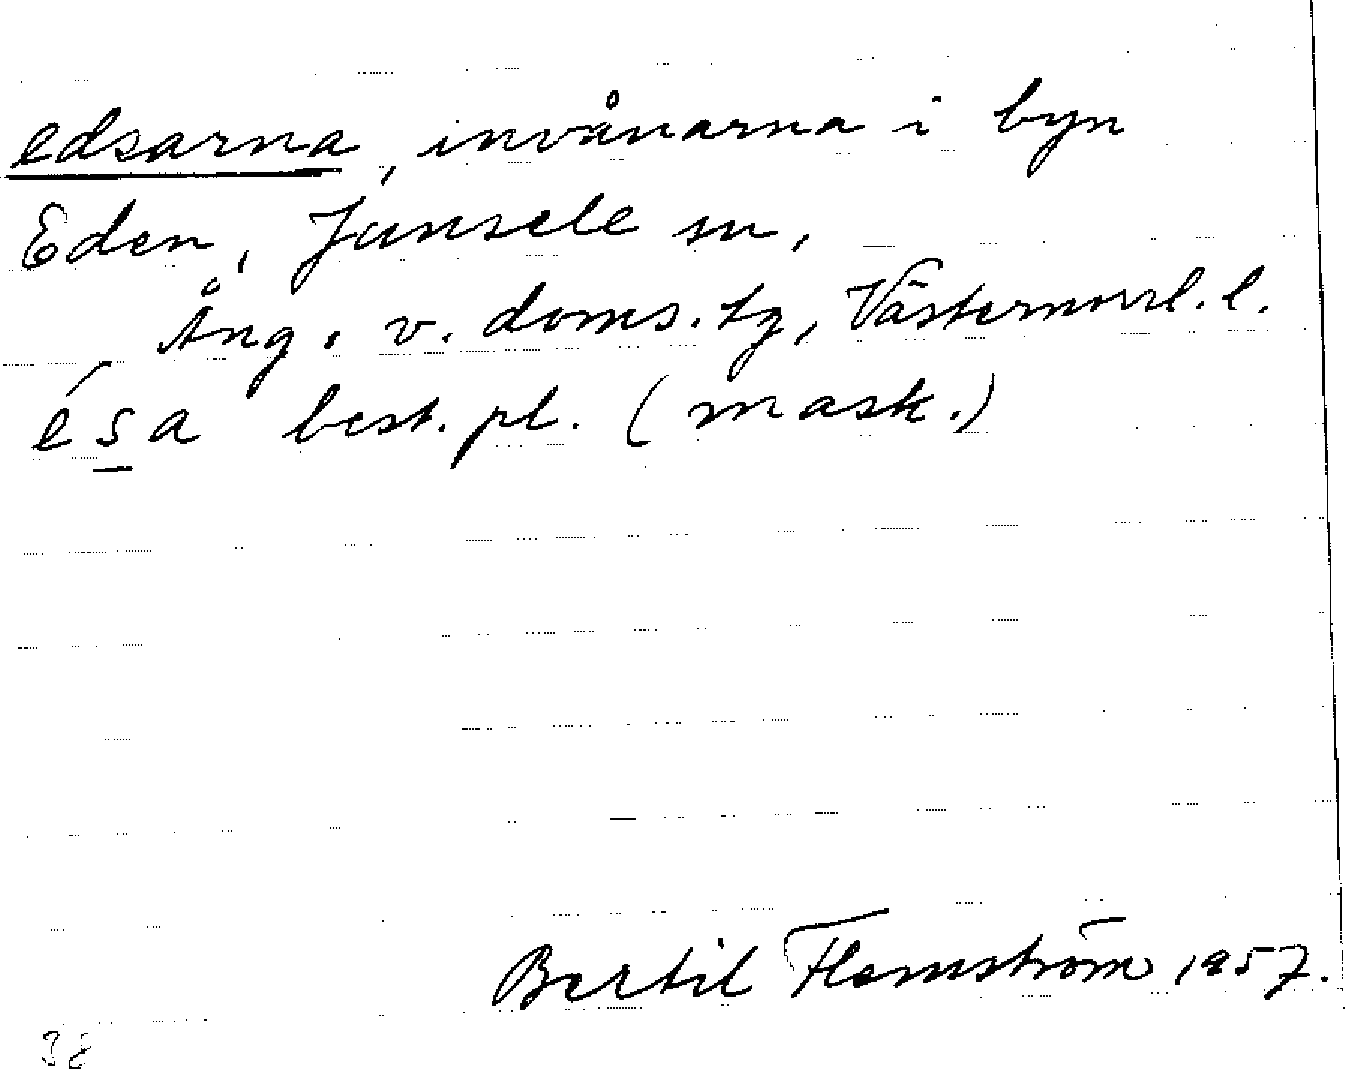 edsarna, invånarna i byn
Eden, Junsele sn,
Ång. v. doms. tg, Västernorrl. l.
ésa best. pl. (mask.)
Bertil Flemström 1957.
38